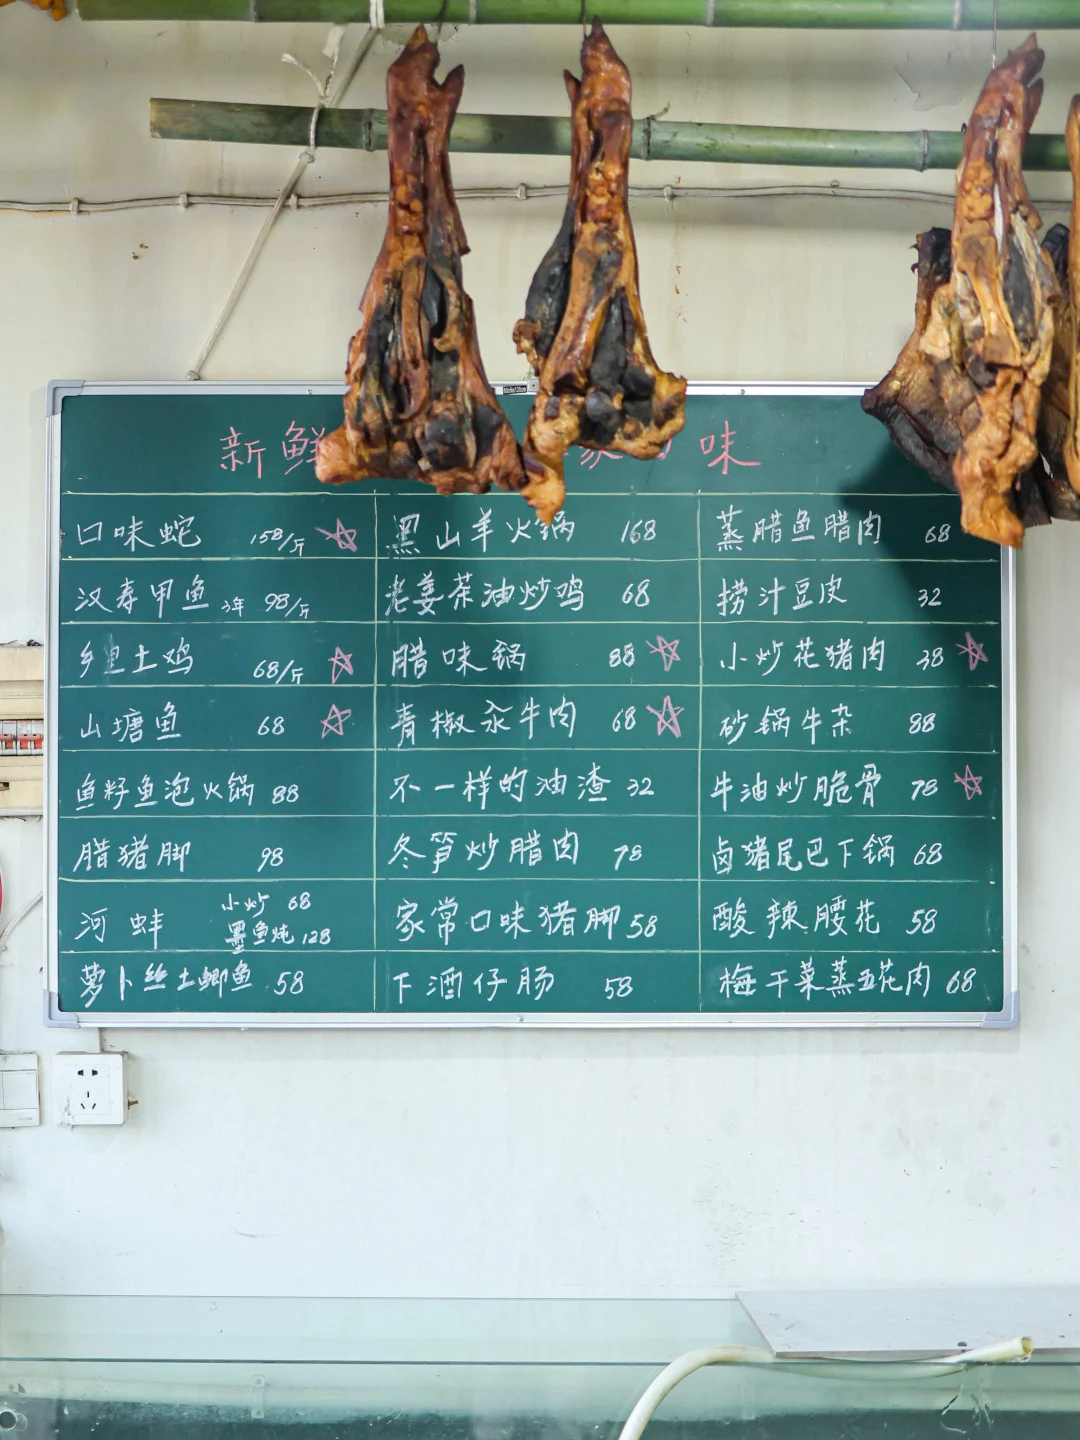 新鲜 味
口味蛇 158/斤 ☆
汉寿甲鱼 3年 98/斤
乡里土鸡 68/斤 ☆
山塘鱼 68 ☆
鱼籽鱼泡火锅 88
腊猪脚 98
河蚌 小炒 68
墨鱼炖 128
萝卜丝土鲫鱼 58
黑山羊火锅 168
老姜茶油炒鸡 68
腊味锅 88 ☆
青椒永牛肉 68 ☆
不一样的油渣 32
冬笋炒腊肉 78
家常口味猪脚 58
下酒仔肠 58
蒸腊鱼腊肉 68
捞汁豆皮 32
小炒花猪肉 38 ☆
砂锅牛杂 88
牛油炒脆骨 78 ☆
卤猪尾巴下锅 68
酸辣腰花 58
梅干菜蒸五花肉 68